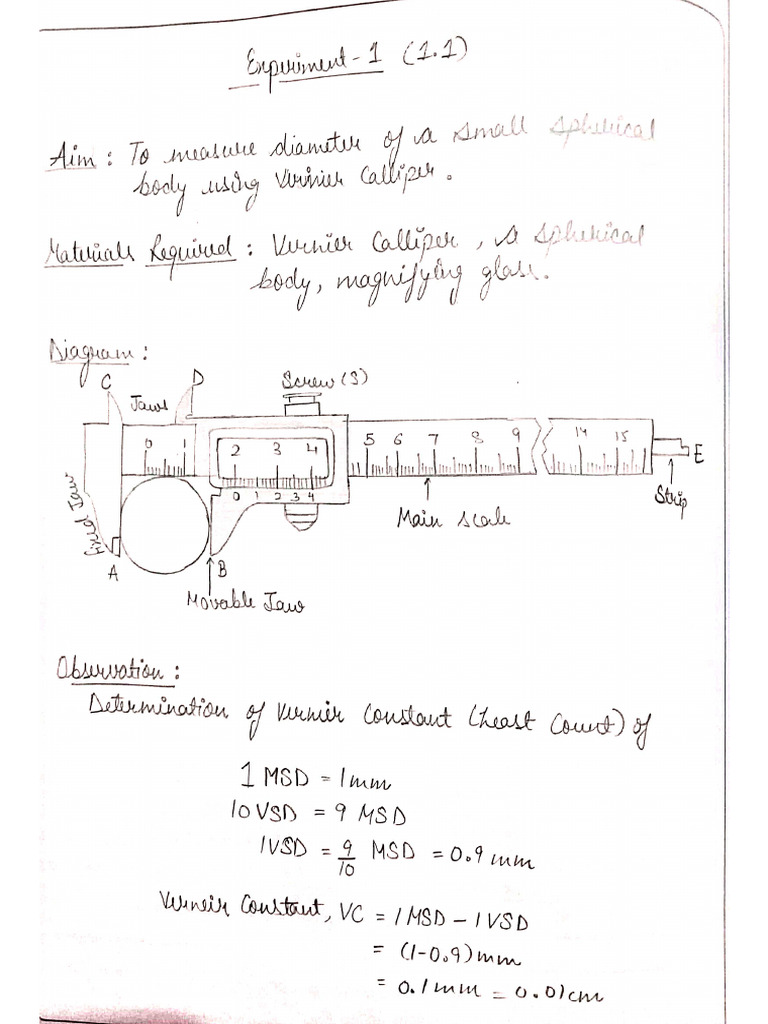 Experiment-1 (1.1)
Aim : To measure diameter of a small spherical
body using Vernier Calliper.
Materials Required : Vernier Calliper, a spherical
body, magnifying glass.
Diagram :
C
D
Screw (S)
Jaws
0 1
2 3 4
5 6 7 8 9
14 15
E
0 1 2 3 4
Strip
Main scale
Fixed Jaw
A
B
Movable Jaw
Observation :
Determination of Vernier Constant (Least Count) of
1 MSD = 1mm
10 VSD = 9 MSD
1VSD = 9/10 MSD = 0.9 mm
Verneir Constant, VC = 1 MSD - 1 VSD
= (1-0.9) mm
= 0.1mm = 0.01cm